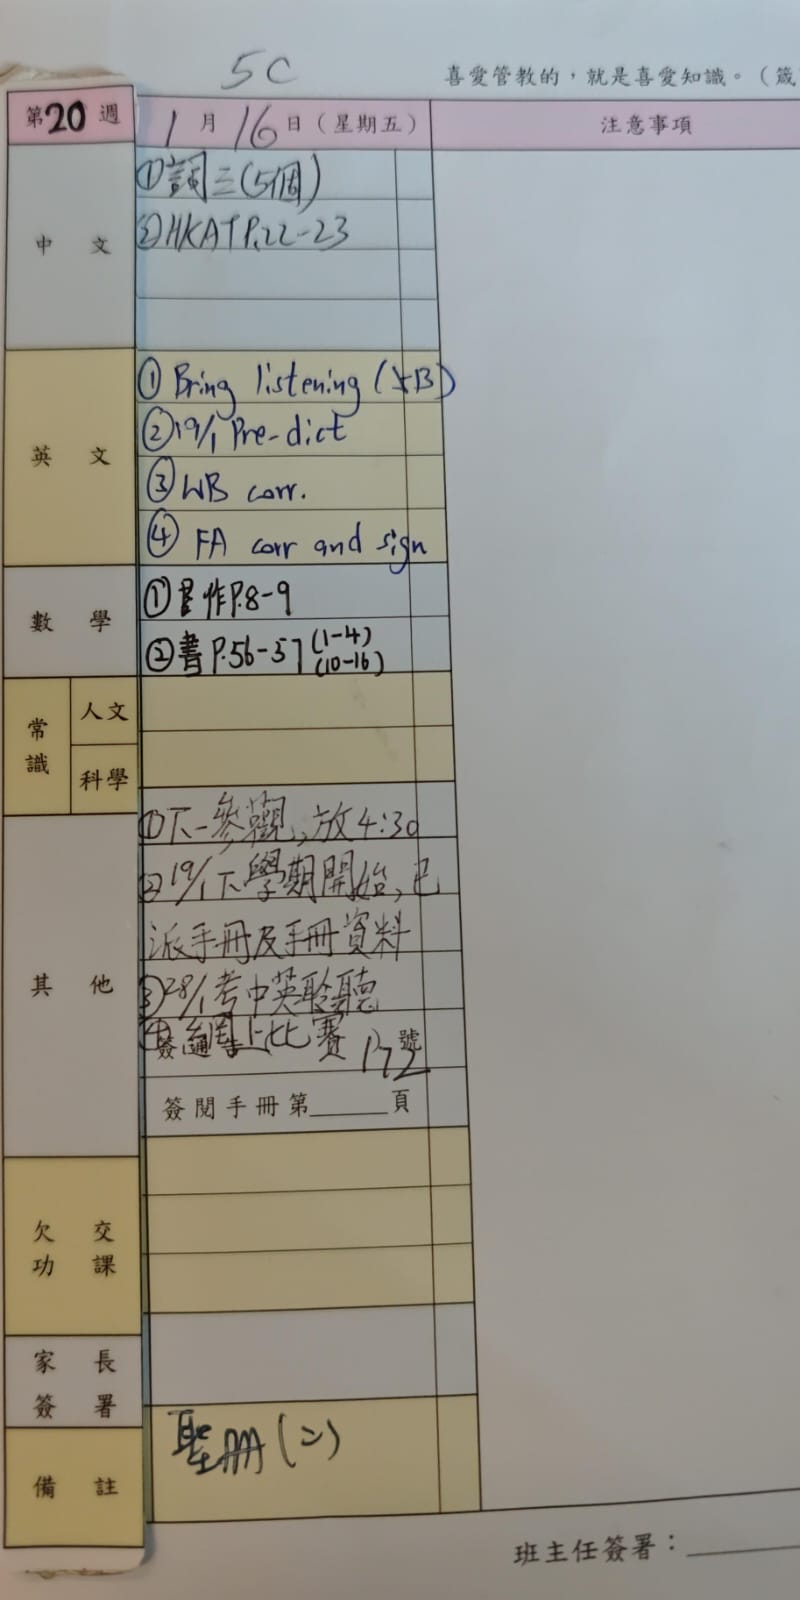 5C
喜愛管教的，就是喜愛知識。（箴
第20週
1月16日（星期五）
注意事項
中文
①詞三(5個)
②HKAT P.22-23
英文
① Bring listening (5B)
②19/1 Pre-dict
③ WB corr.
④ FA corr and sign
數學
①習作P.8-9
②書P.56-57 (1-4)
(10-16)
常識
人文
科學
其他
①下一參觀,,放4:30
②19/1下學期開始,已
派手冊及手冊資料
③28/1考中英聆聽
④網上比賽
簽通告 172 號
簽閱手冊第______頁
欠交
功課
家長
簽署
備註
聖冊(二)
班主任簽署：